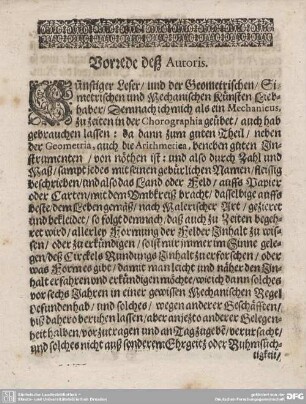 Vorrede deß Autoris.
Günstiger Leser/ und der Geometrischen/ Si-
metrischen und Mechanischen Künsten Lieb-
haber/ Demnach ich mich als ein Mechanicus,
zu zeiten in der Chorographia geübet/ auch hab
gebrauchen lassen: da dann zum guten Theil/ neben
der Geometria, auch die Arithmetica, beneben guten In-
strumenten/ von nöthen ist: und also durch Zahl und
Maß/ sampt jedes mit seinen gebürlichen Namen/ fleissig
beschrieben/ und also das Land oder Feld/ auffs Papier
oder Carten/ mit dem Umbkreiß bracht/ dasselbige auffs
beste/ dem Leben gemäß/ nach Malerischer Art/ gezieret
und bekleidet/ so folget demnach/ daß auch zu Zeiten begeh-
ret wird/ allerley Formung der Felder Inhalt zu wis-
sen/ oder zu erkündigen/ so ist mir immer im Sinne gele-
gen/ deß Circkels Rundungs Inhalt zu erforschen/ oder
was Form es gibt/ damit man leicht und näher den In-
halt erfahren und erkündigen möchte/ wie ich dann solches
vor sechs Jahren in einer gewissen Mechanischen Regel
befunden hab/ und solches/ wegen anderer Geschäfften/
biß dahero beruhen lassen/ aber anjetzo anderer Gelegen-
heit halben/ vorzutragen und an Tag zugebē/ verursacht/
und solches nicht auß sonderem Ehrgeitz oder Ruhmsüch-
tigkeit/